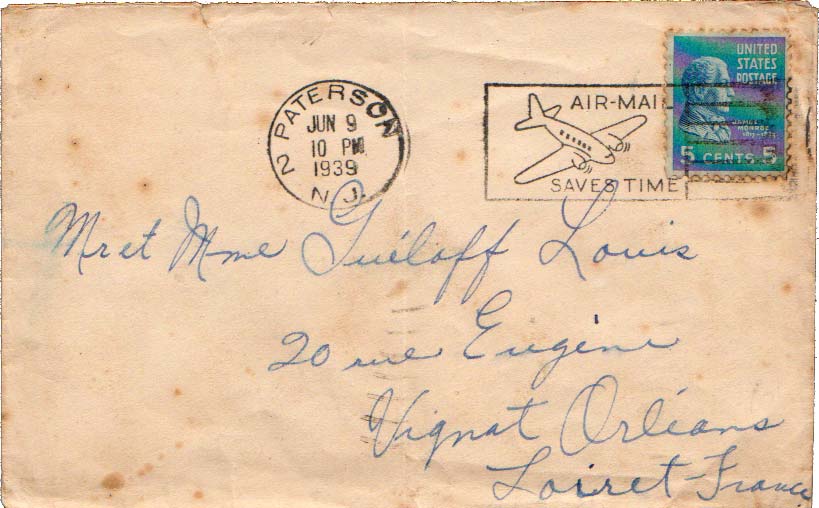 2 PATERSON
JUN 9
10 PM
1939
N. J.
AIR-MAIL
SAVES TIME
UNITED
STATES
POSTAGE
JAMES
MONROE
5 CENTS 5
Mr et Mme Guéloff Louis
20 rue Eugène
Vignat Orléans
Loiret-France